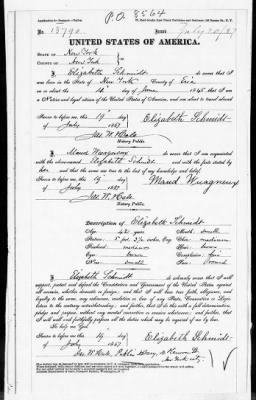 P.O. 8564
No. 18790 Issued July 20/87
UNITED STATES OF AMERICA.
STATE OF New York
COUNTY OF New York
I, Elizabeth Schmidt do swear that I
was born in the State of New York County of Erie
on or about the 16 day of June 1845 that I am
a Native and loyal citizen of the United States of America, and am about to travel abroad
Sworn to before me this 19 day
of July 1887 Elizabeth Schmidt
Jas. W. Hale
Notary Public.
I, Maud Wuagneux do swear that I am acquainted
with the above-named Elizabeth Schmidt and with the facts stated by
her and that the same are true to the best of my knowledge and belief.
Sworn to before me this 19 day
of July 1887 Maud Wuagneux
Jas. W. Hale
Notary Public.
Description of Elizabeth Schmidt
Age 42 years Mouth small
Stature 5 feet 3½ inches Eng. Chin medium
Forehead medium Hair brown
Eyes Complexion fair
Nose small Face round
I, Elizabeth Schmidt do solemnly swear that I will
support, protect and defend the Constitution and Government of the United States against
all enemies, whether domestic or foreign; and that I will bear true faith, allegiance, and
loyalty to the same, any ordinance, resolution or law of any State, Convention or Legis-
lature to the contrary notwithstanding; and further, that I do this with a full determination,
pledge and purpose, without any mental reservation or evasion whatsoever; and further, that
I will well and faithfully perform all the duties which may be required of me by law.
So help me God.
Sworn to before me this 19 day
of July 1887 Elizabeth Schmidt
Jas. W. Hale, Notary Public
New York City